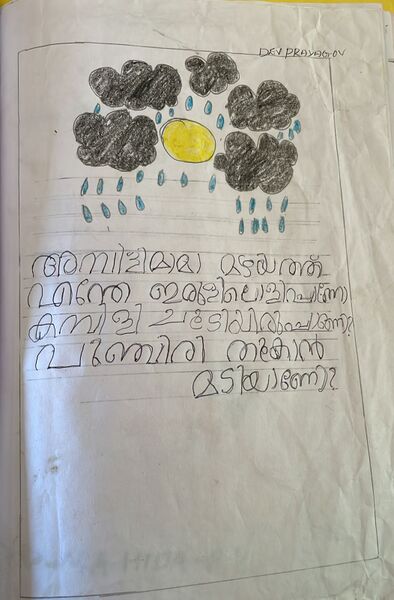 DEV PRAYAG.OV
അമ്പിളിമാമാ മഴയത്ത്
എന്തേ ഇരുളിലൊളിപ്പാണോ
കമ്പിളി ചൂടിയിരുപ്പാണോ?
പുഞ്ചിരി തൂകാൻ
മടിയാണോ?